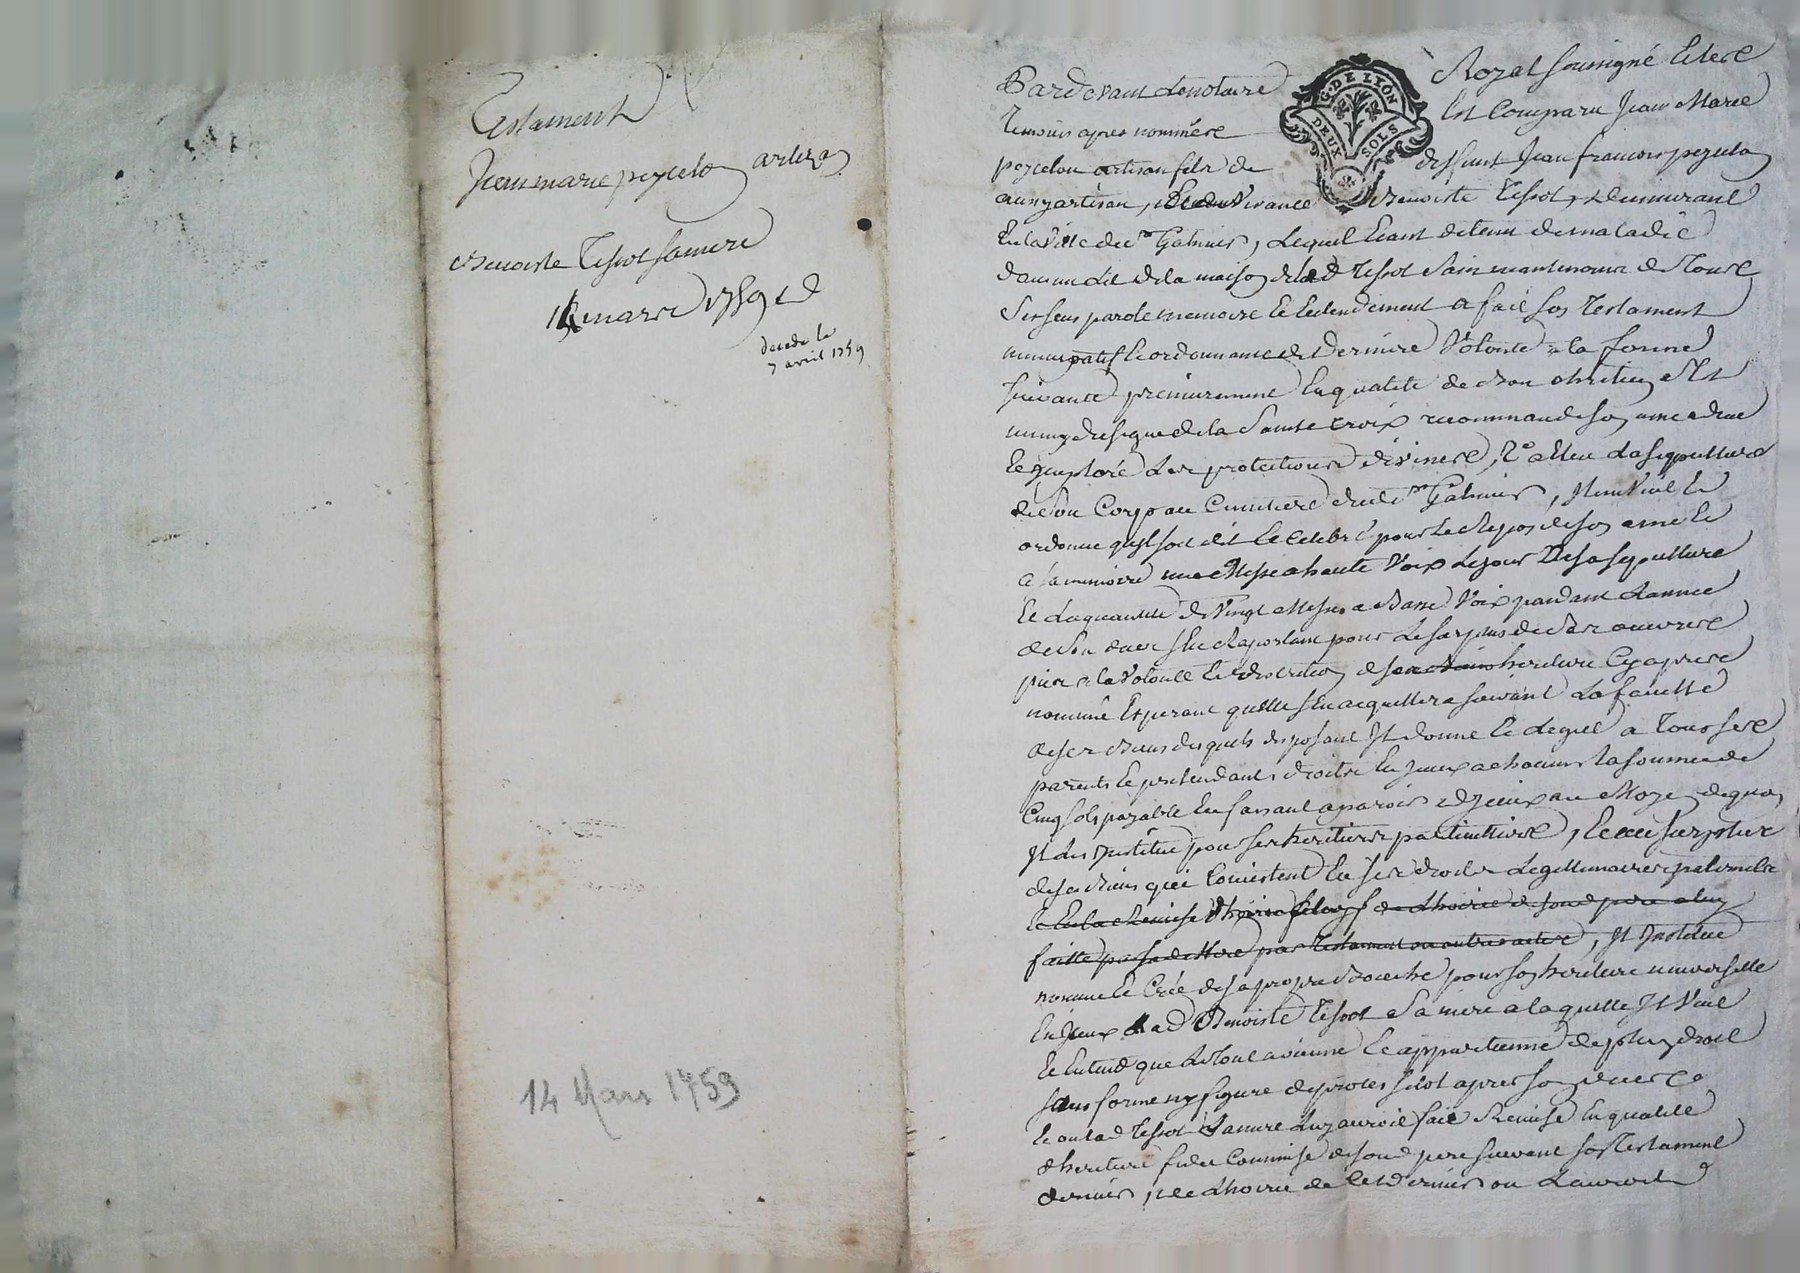 Testament
Jean marie peycelon artizan
Benoiste Tissot sa mere
14 mars 1759
decede le
7 avril 1759
14 Mars 1759
G. DE LYON
DEUX SOLS
Pardevant Le notaire Royal soussigné Et les
Temoins apres nommés Est Comparu Jean Marie
peycelon artisan fils de deffunt Jean francois peycelon
aussy artisan, Et de Vivante Benoiste Tissot, Demeurant
En la Ville de St Galmier, Lequel Etant detenu de maladie
dans un Lit de la maison de lad Tissot Sain neantmoins de Tous
Ses sens parole memoire Et Entendement a fait son Testament
nuncupatif Et ordonnance de Derniere Volonté a la forme
suivante premierement En qualité de bon chretien s'Est
muny du signe de la Sainte croix recommandé son ame a dieu
Et Imploré Les protections divines, Eleu La sepulture
de Son Corps au Cimetiere dud St Galmier, Item Veut Et
ordonne qu'il soit dit Et Celebré pour Le Repos de son ame Et
a sa memoire une Messe a haute Voix Le jour De sa sepulture
Et La quantité de Vingt Messes a Basse Voix pendant L'année
de Son deces s'En Raportant pour Le surplus de Ses oeuvres
pies a la Volonté Et discretion de son heritiere Cy apres
nommée Esperant qu'elle s'En acquittera suivant La faculté
de ses Biens desquels disposant Il donne Et Legue a Tous ses
parents Et pretendants droits En Iceux a chacun La somme de
Cinq sols payable En faisant aparoir d'Iceux au Moyen de quoy
Il Les Institue pour ses heritiers particulliers, Et au surplus
de ses Biens qui Consistent En ses droits Legitimaires paternels
Et En la Remise de hoirie de son d pere a luy
faitte par sad Mere par Testament ou autres actes, Il Institue
nomme Et Crée de sa propre Bouche pour son heritiere universelle
En Iceux Lad Benoiste Tissot Sa mere a laquelle Il Veut
Et Entend que Le Tout avienne Et appartienne de plein droit
sans forme ny figure de proces sitot apres son deces
Et ou lad Tissot Sa mere Luy auroit fait Remise En qualité
d'heritiere fidei Commise de son d pere suivant son Testament
dernier, de L'hoirie de ce dernier ou